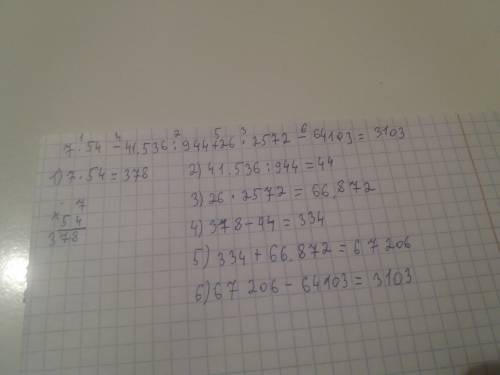 7 · 54 - 41.536 : 944 + 26 · 2572 - 64103 = 3103
1) 7 · 54 = 378
7
54
378
2) 41.536 : 944 = 44
3) 26 · 2572 = 66.872
4) 378 - 44 = 334
5) 334 + 66.872 = 67206
6) 67 206 - 64103 = 3103